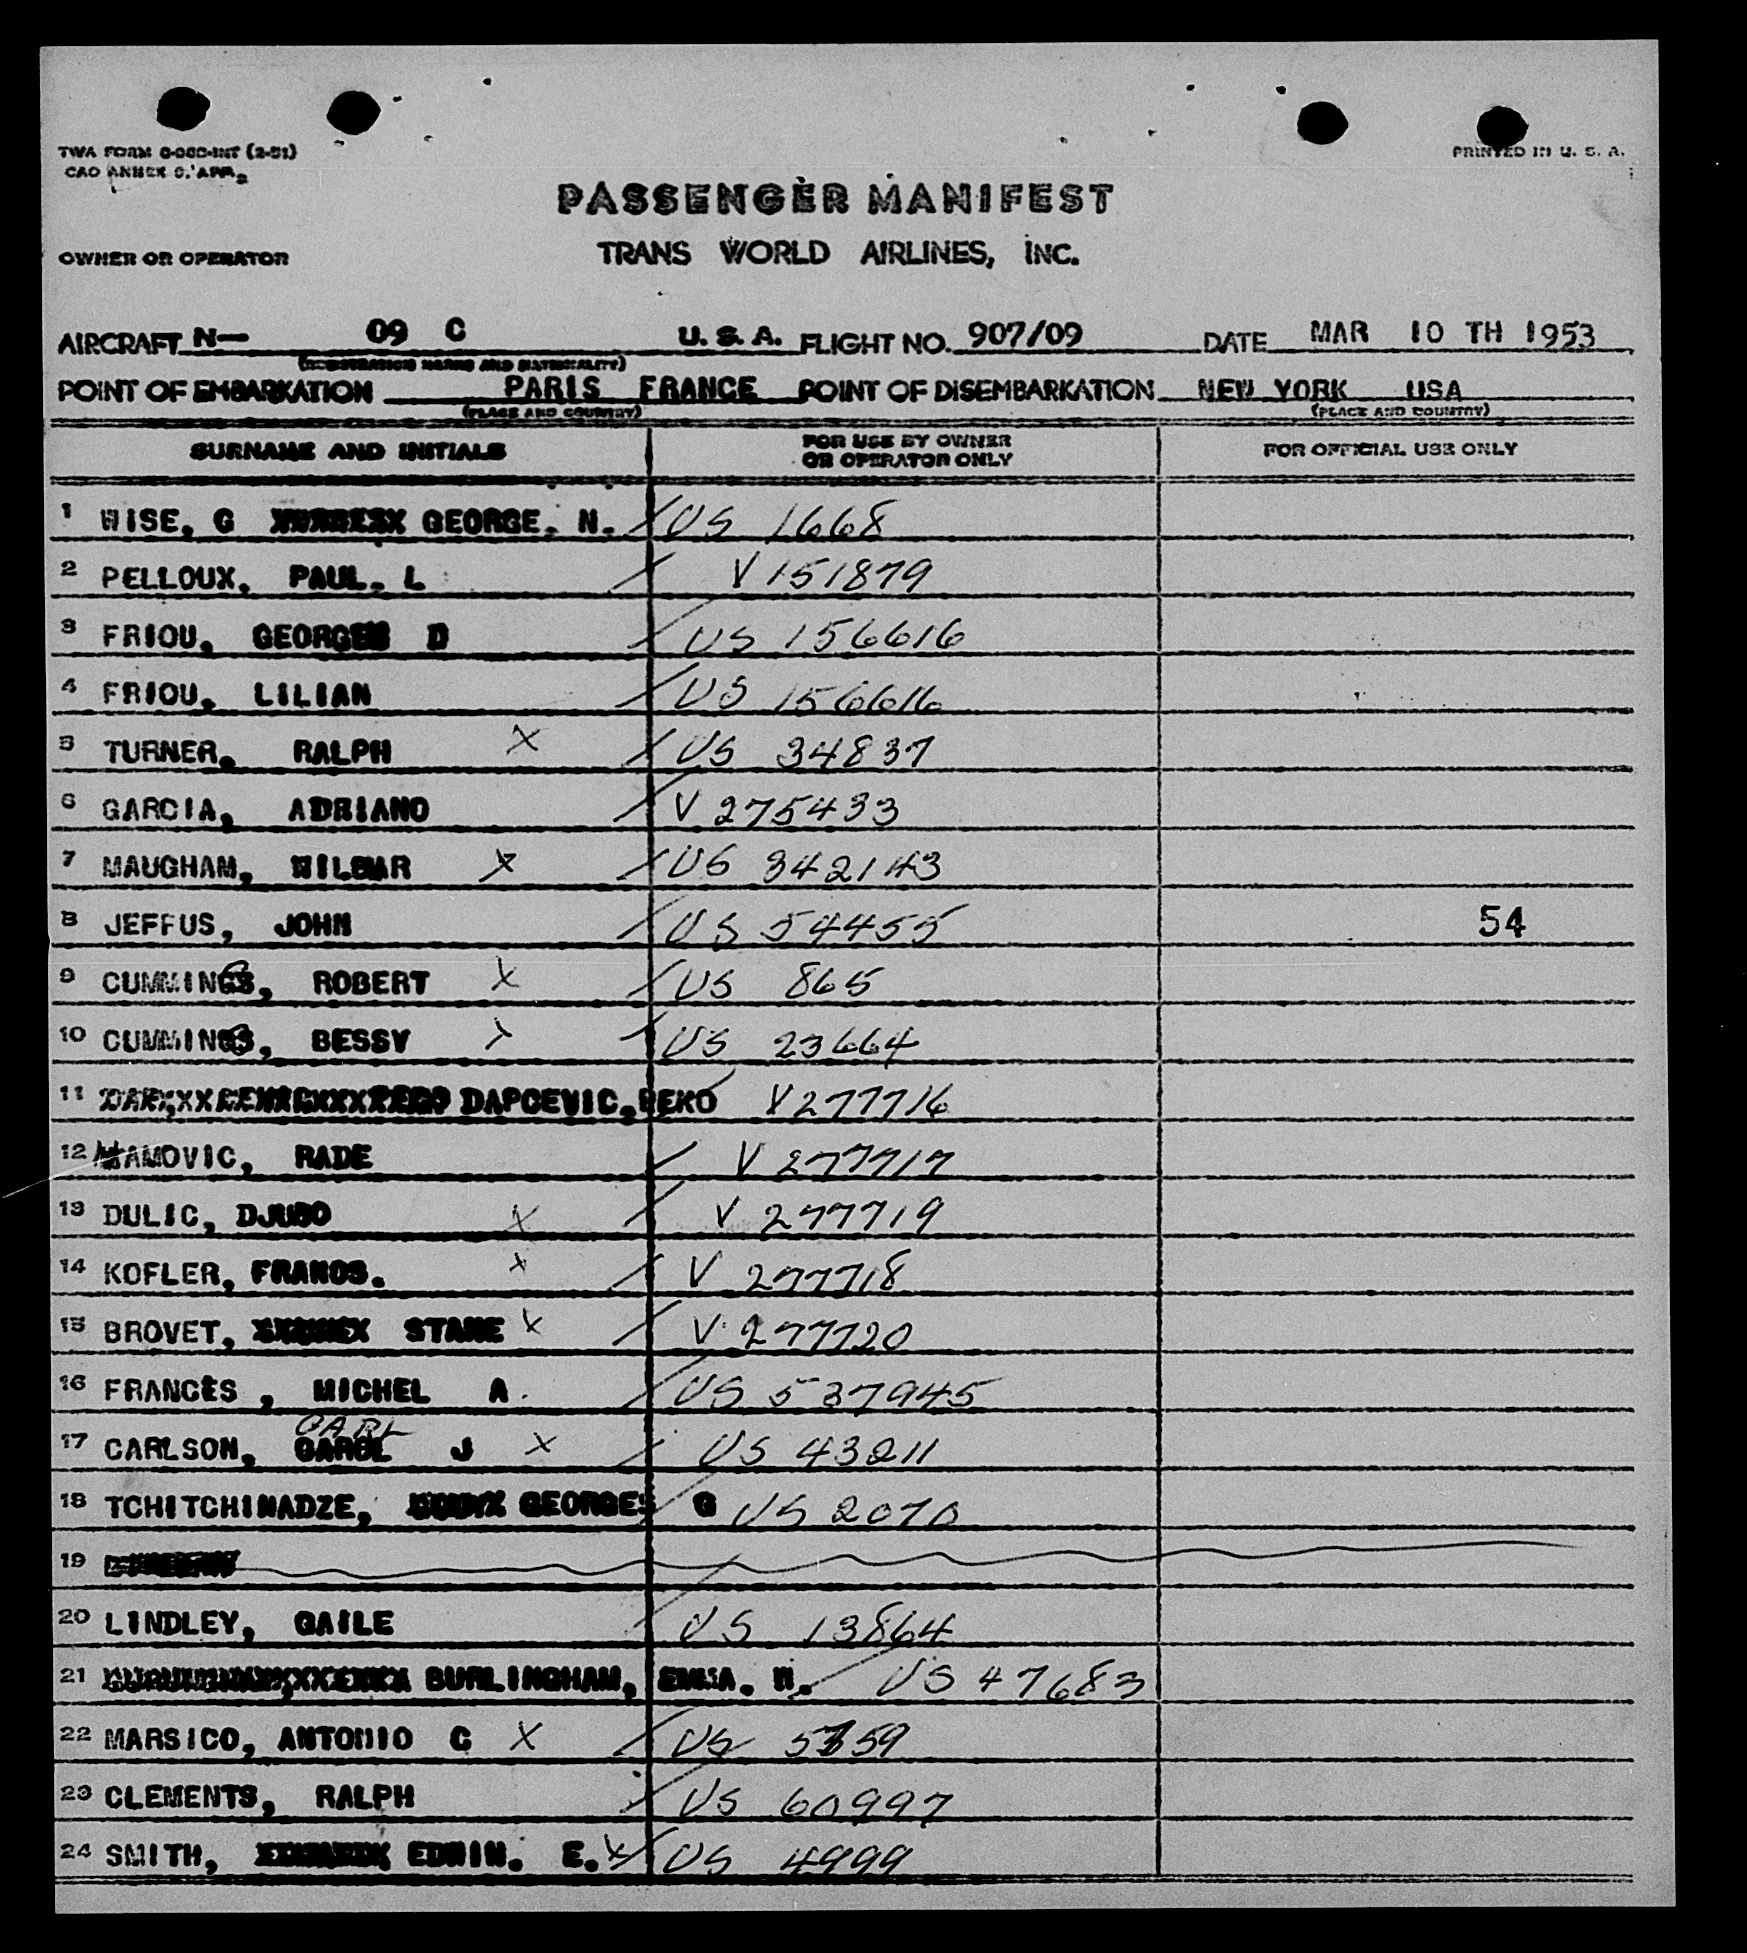 TWA FORM (2-51)
PRINTED IN U. S. A.
CAO ANNEX 9, APP.
PASSENGER MANIFEST
OWNER OR OPERATOR
TRANS WORLD AIRLINES, INC.
AIRCRAFT N— 09 C U. S. A. FLIGHT NO. 907/09 DATE MAR 10 TH 1953
(REGISTRATION MARKS AND NATIONALITY)
POINT OF EMBARKATION PARIS FRANCE POINT OF DISEMBARKATION NEW YORK USA
(PLACE AND COUNTRY) (PLACE AND COUNTRY)
SURNAME AND INITIALS FOR USE BY OWNER OR OPERATOR ONLY FOR OFFICIAL USE ONLY
1 WISE, G GEORGE. N. US 1668
2 PELLOUX, PAUL. L V 151879
3 FRIOU, GEORGE D US 156616
4 FRIOU, LILIAN US 156616
5 TURNER, RALPH X US 34837
6 GARCIA, ADRIANO V 275433
7 MAUGHAM, WILBAR X US 342143
8 JEFFUS, JOHN US 54455 54
9 CUMMINGS, ROBERT X US 865
10 CUMMINGS, BESSY X US 23664
11 DAPCEVIC, PEKO V 277716
12 AMOVIC, RADE V 277717
13 DULIC, DJURO X V 277719
14 KOFLER, FRANCS. X V 277718
15 BROVET, STANE X V 277720
16 FRANCES, MICHEL A. US 537945
CARL
17 CARLSON, CAROL J X US 43211
18 TCHITCHINADZE, GEORGES G US 2070
19
20 LINDLEY, GAILE US 13864
21 BURLINGHAM, EMMA. H. US 47683
22 MARSICO, ANTONIO C X US 5359
23 CLEMENTS, RALPH US 60997
24 SMITH, EDWIN. E. X US 4999